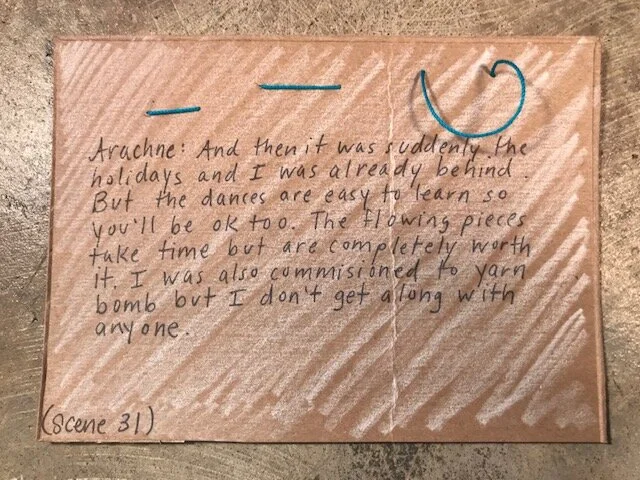 Arachne: And then it was suddenly the
holidays and I was already behind.
But the dances are easy to learn so
you'll be ok too. The flowing pieces
take time but are completely worth
it. I was also commisioned to yarn
bomb but I don't get along with
anyone.
(Scene 31)